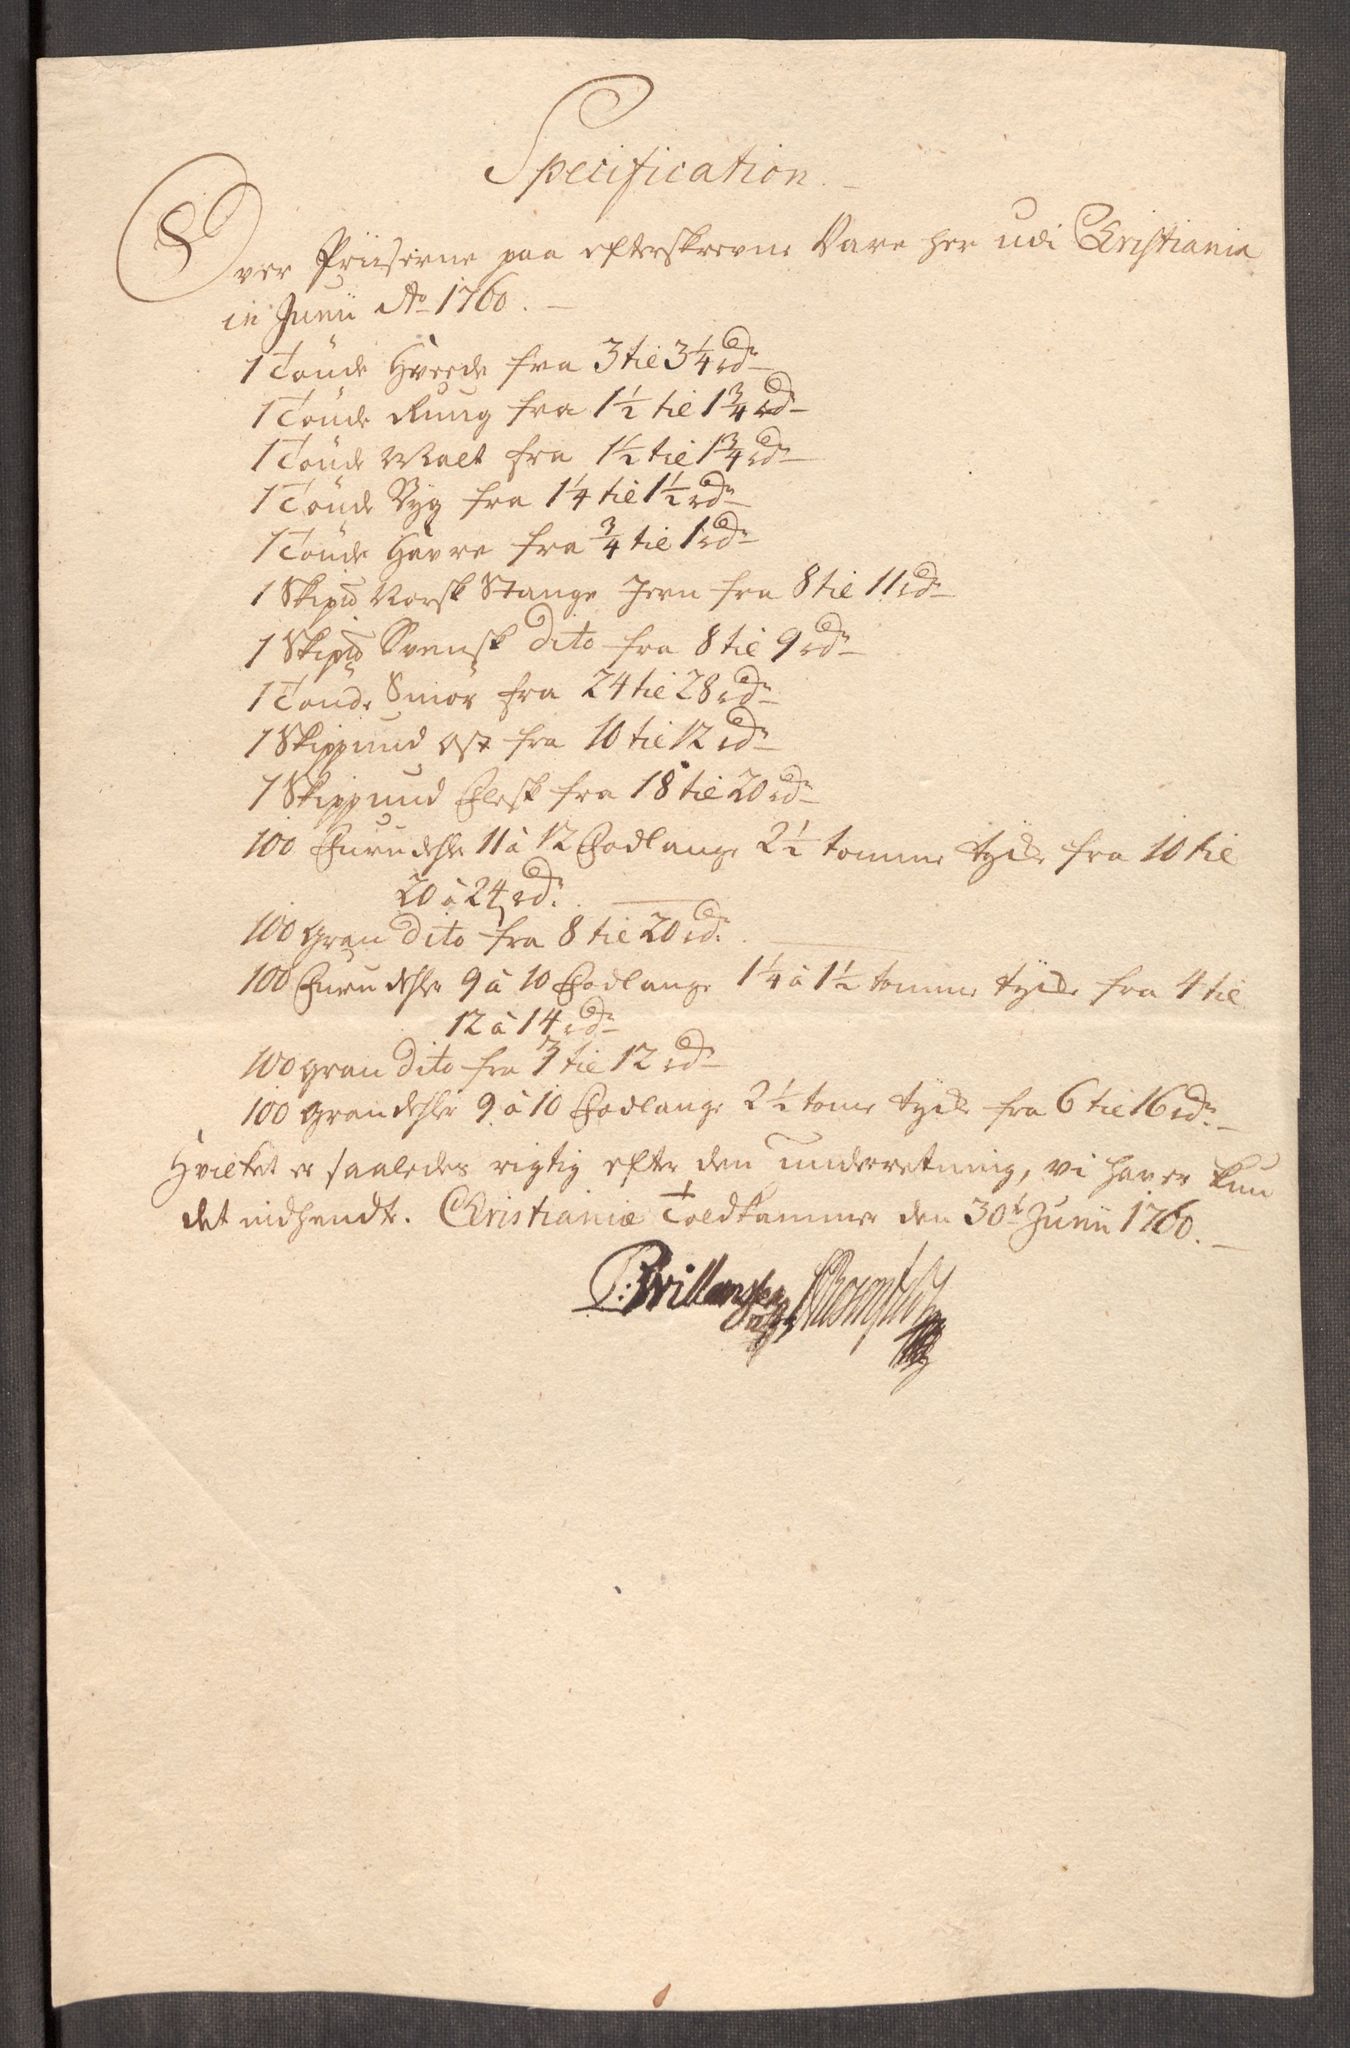 Specification.
Over Priiserne paa efterskrevne Vare her udi Christiania
in Junii Ao 1760.
1 Tönde Hvede fra 3 til 3 1/4 rdr
1 Tönde Rug fra 1 1/2 til 1 3/4 rdr
1 Tönde Malt fra 1 1/2 til 1 3/4 rdr
1 Tönde Byg fra 1 1/4 til 1 1/2 rdr
1 Tönde Havre fra 3/4 til 1 rdr
1 Skip℔ Norsk Stange Jern fra 8 til 11 rdr
1 Skip℔ Svensk dito fra 8 til 9 rdr
1 Tönde Smör fra 24 til 28 rdr
1 Skippund Ost fra 10 til 12 rdr
1 Skippund Flesk fra 18 til 20 rdr
100 Furu dehler 11 à 12 Fodlange 2 1/2 tomme tyke fra 10 til
20 à 24 rdr.
100 gran dito fra 8 til 20 rdr.
100 Furu dehler 9 à 10 Fodlange 1 1/4 à 1 1/2 tomme tyke fra 4 til
12 à 14 rdr
100 gran dito fra 3 til 12 rdr
100 grandehler 9 à 10 Fodlange 2 1/2 tome tyke fra 6 til 16 rdr.
Hvilket er saaledes rigtig efter den underretning, vi haver kun
det indhendte. Christianiæ Toldkammer den 30t Junii 1760.